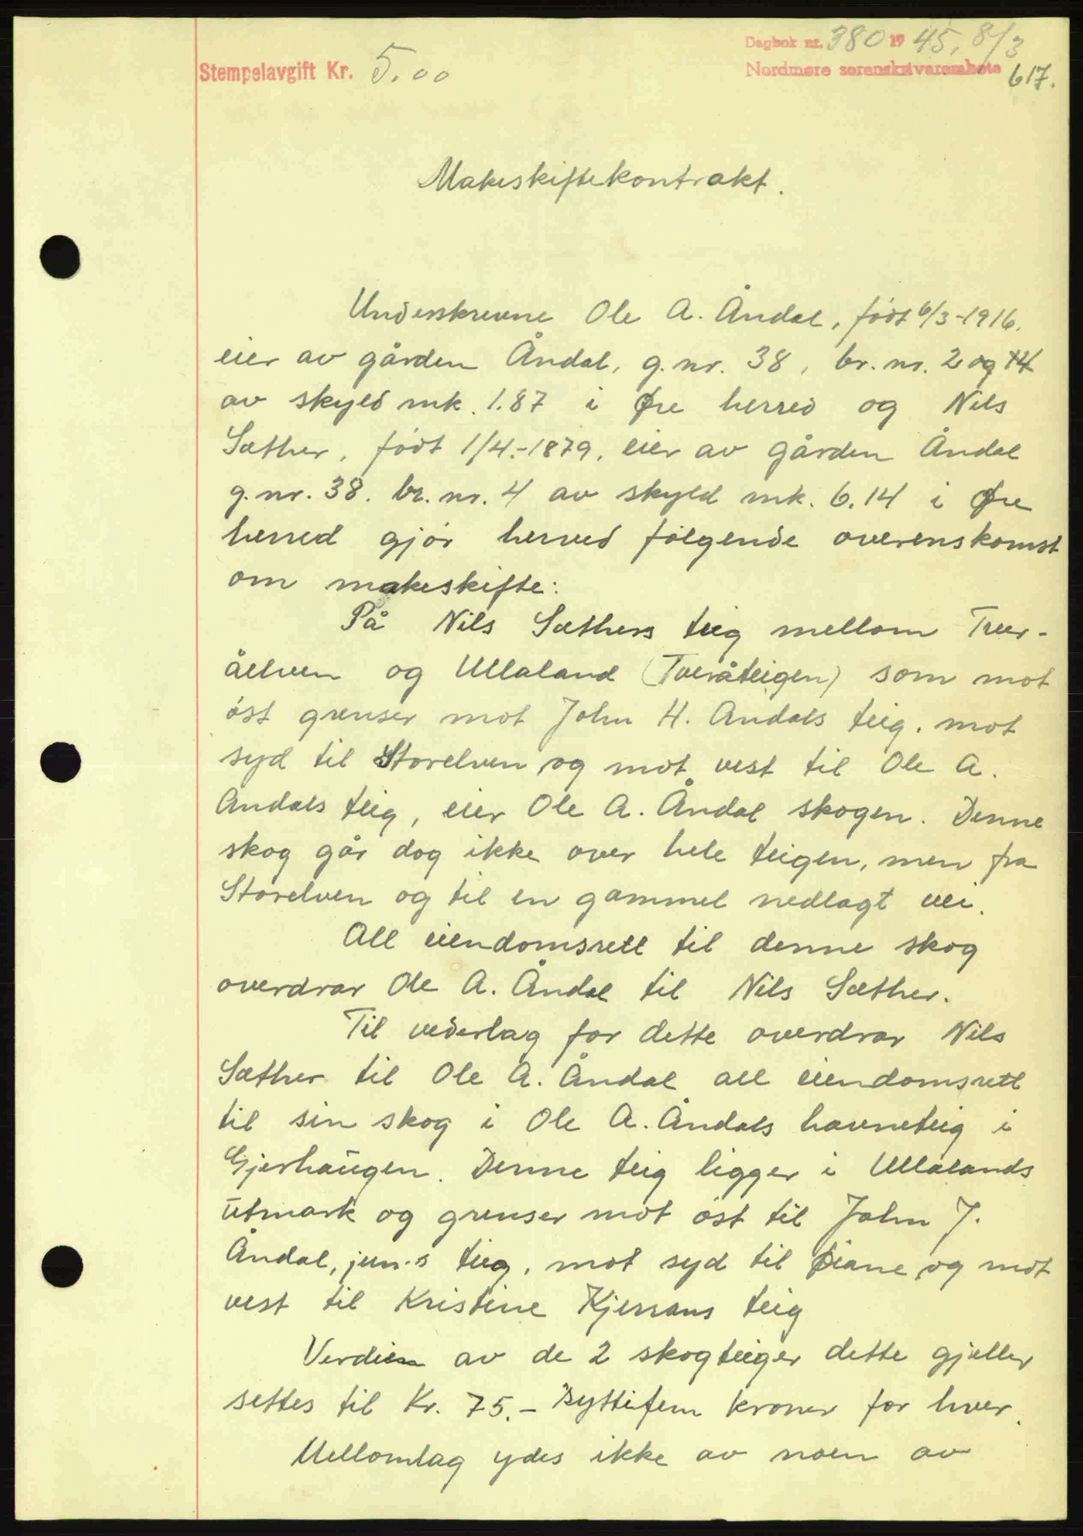 Dagbok nr. 380 19 45, 8/3
Stempelavgift Kr. 5.00
Nordmøre sorenskriverembete
617.
Makeskiftekontrakt.
Underskrevne Ole A. Åndal, født 6/3-1916.
eier av gården Åndal, g.nr. 38, br.nr. 2 og 14
av skyld mk. 1.87 i Øre herred og Nils
Sæther, født 1/4.-1879, eier av gården Åndal
g.nr. 38. br.nr. 4 av skyld mk. 6.14 i Øre
herred gjør herved følgende overenskomst
om makeskifte:
På Nils Sæthers teig mellom Tver-
åelven og Ullaland (Tveråteigen) som mot
øst grenser mot John H. Åndals teig, mot
syd til Storelven og mot vest til Ole A.
Åndals teig, eier Ole A. Åndal skogen. Denne
skog går dog ikke over hele teigen, men fra
Storelven og til en gammel nedlagt vei.
All eiendomsrett til denne skog
overdrar Ole A. Åndal til Nils Sæther.
Til vederlag for dette overdrar Nils
Sæther til Ole A. Åndal all eiendomsrett
til sin skog i Ole A. Åndals havneteig i
Gjerhaugen. Denne teig ligger i Ullalands
utmark og grenser mot øst til John J.
Åndal, jun.s teig, mot syd til Øiane og mot
vest til Kristine Kjerrans teig
Verdien av de 2 skogteiger dette gjeller
settes til Kr. 75.- Syttifem kroner for hver.
Mellomlag ydes ikke av noen av